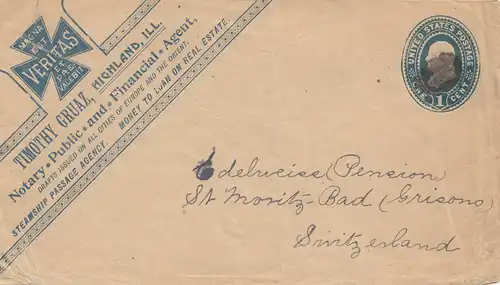 MAGNA
EST
VERITAS
ET
PRÆ
VALEBIT
TIMOTHY GRUAZ, HIGHLAND, ILL.
Notary • Public • and • Financial • Agent,
DRAFTS ISSUED ON ALL CITIES OF EUROPE AND THE ORIENT.
STEAMSHIP PASSAGE AGENCY. MONEY TO LOAN ON REAL ESTATE.
UNITED STATES POSTAGE
ONE 1 CENT
Edelweiss (Pension)
St Moritz-Bad (Grisons)
Switzerland